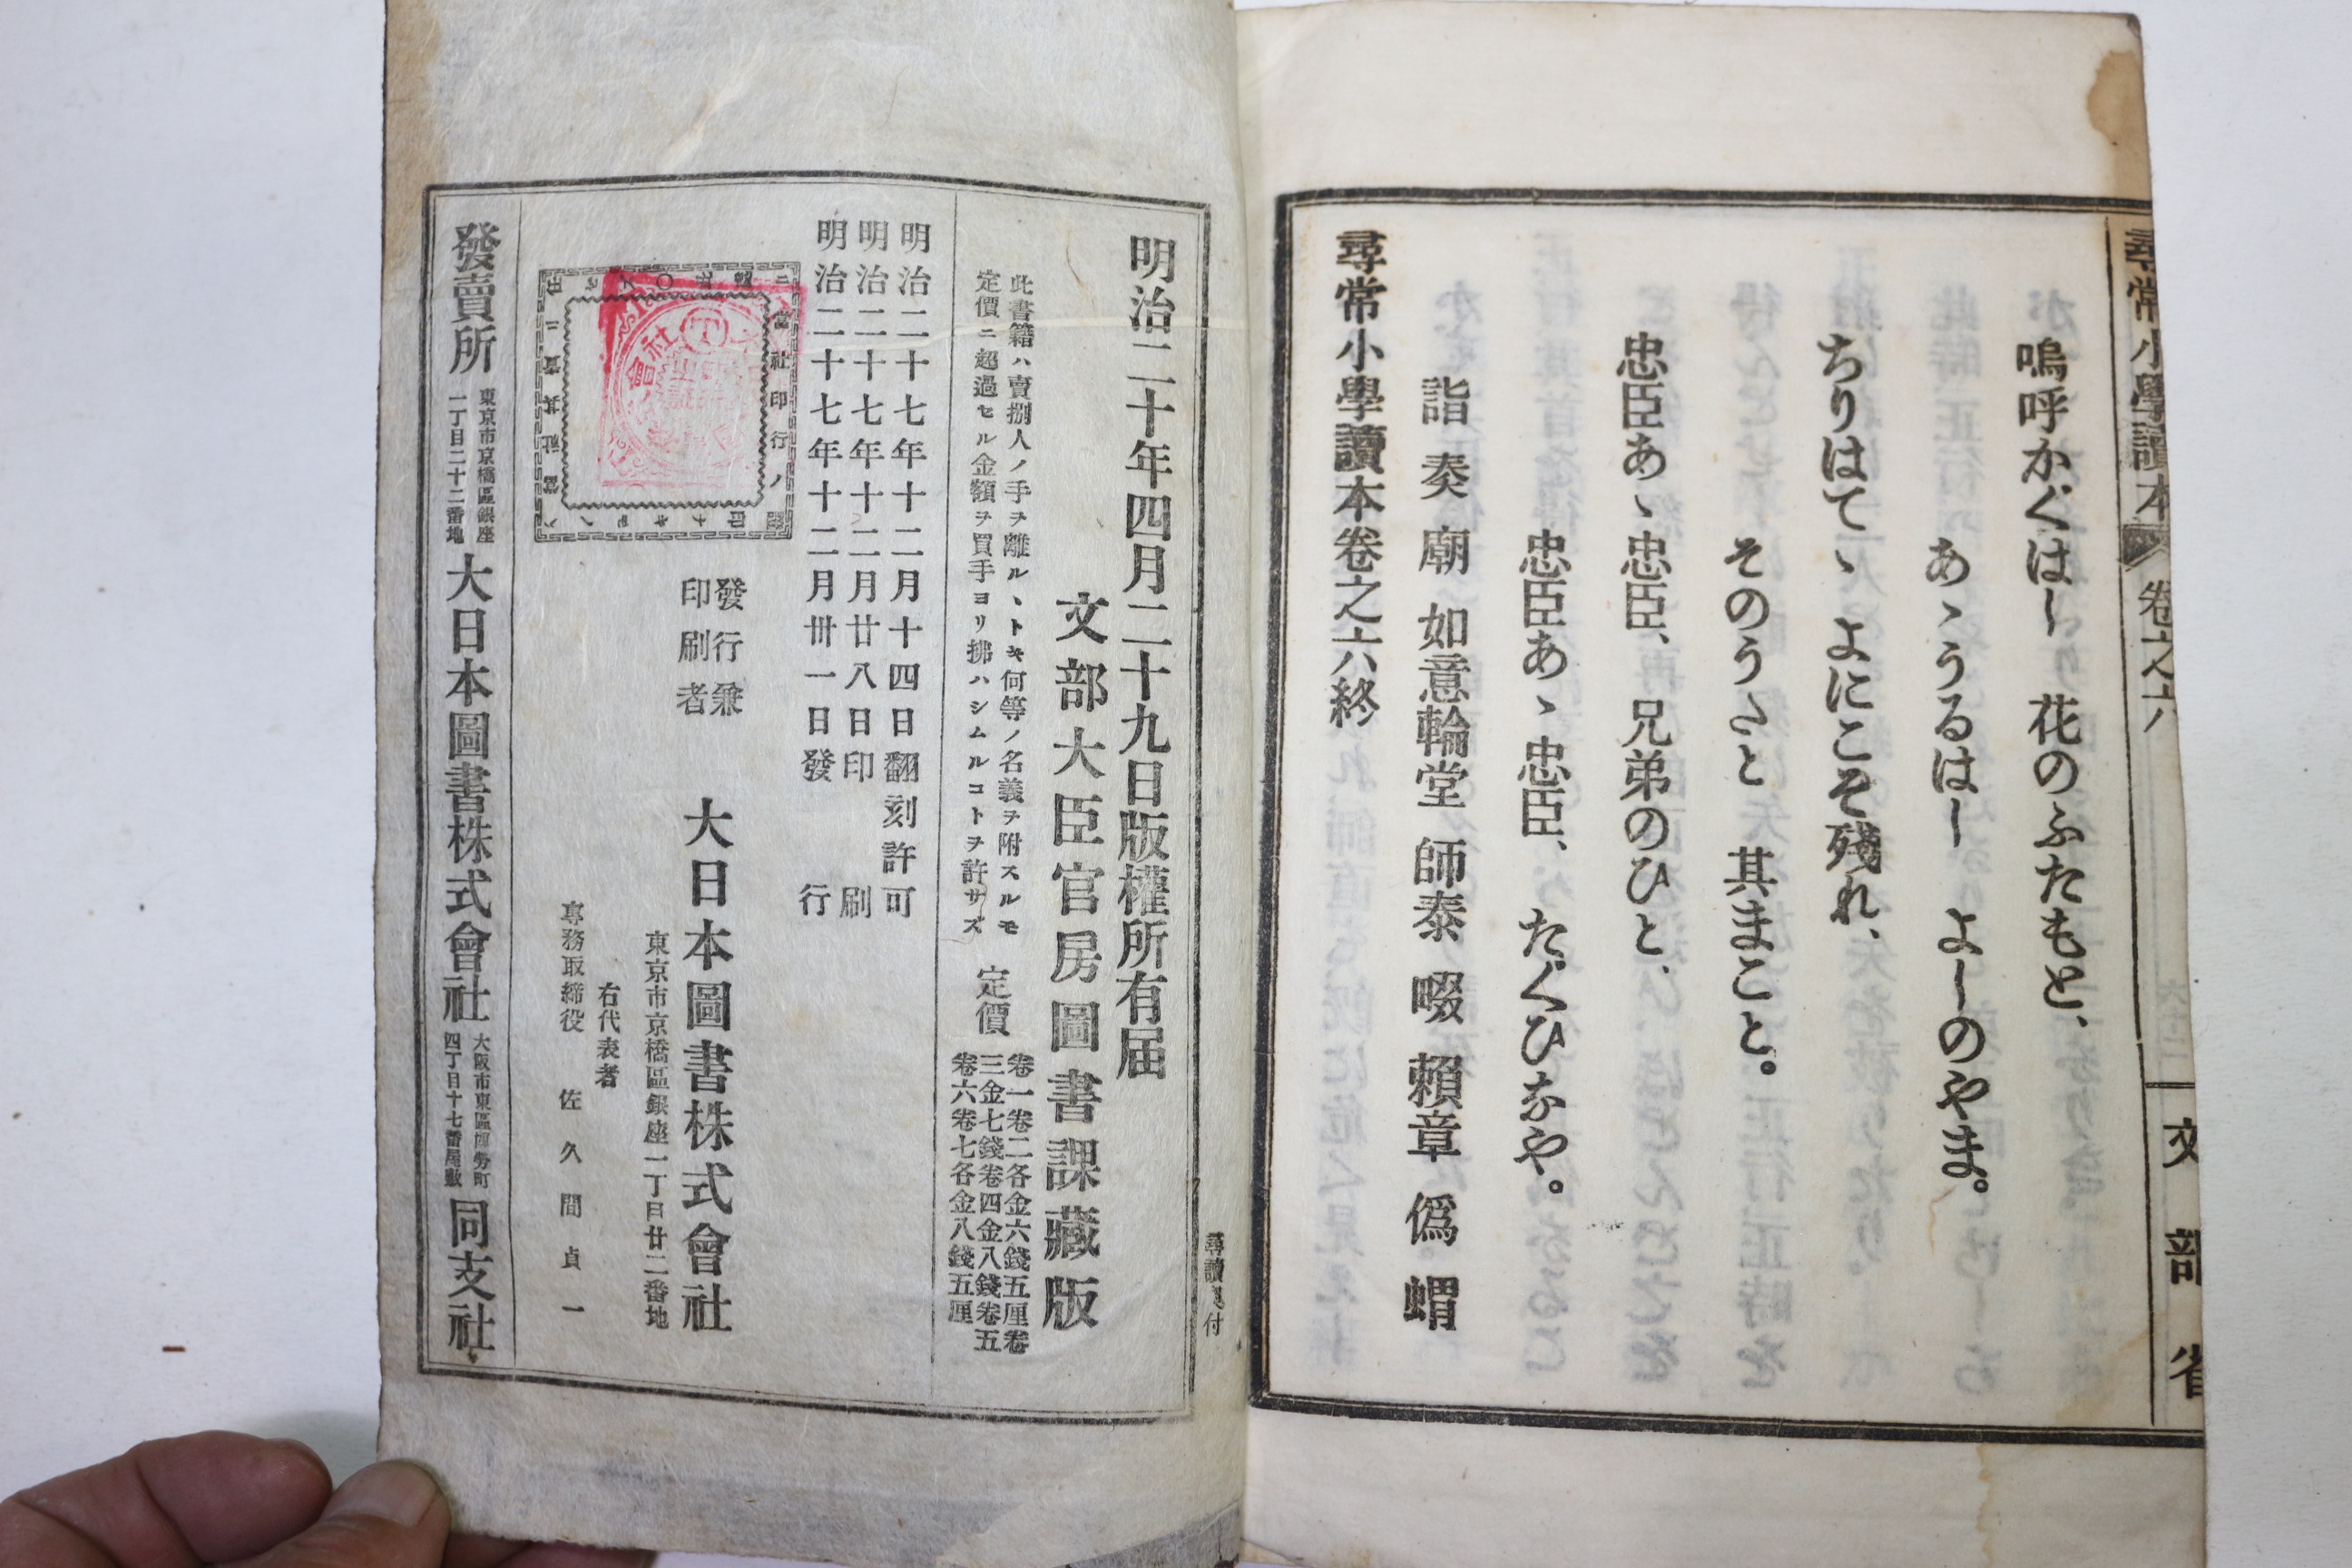 尋常小學讀本 卷之六
文部省
嗚呼かぐはし 花のふたもと、
あゝうるはし よしのやま。
ちりはてゝ よにこそ殘れ、
そのうたと 其まこと。
忠臣あゝ忠臣、 兄弟のひと、
忠臣あゝ忠臣、 たぐひなや。
詣 奏 廟 如意輪堂 師泰 啜 賴章 僞 蝟
尋常小學讀本卷之六終
明治二十年四月二十九日版權所有届
文部大臣官房圖書課藏版
此書籍ハ賣捌人ノ手ヲ離ルヽトキ何等ノ名義ヲ附スルモ
定價ニ超過セル金額ヲ買手ヨリ拂ハシムルコトヲ許サズ
定價
卷一卷二各金六錢五厘卷
三金七錢卷四金八錢卷五
卷六卷七各金八錢五厘
明治二十七年十二月十四日翻刻許可
明治二十七年十二月廿八日印刷
明治二十七年十二月卅一日發行
發行兼
印刷者
大日本圖書株式會社
東京市京橋區銀座一丁目廿二番地
右代表者
專務取締役 佐久間貞一
發賣所
東京市京橋區銀座
一丁目二十二番地
大日本圖書株式會社
四丁目十七番屋敷
同支社